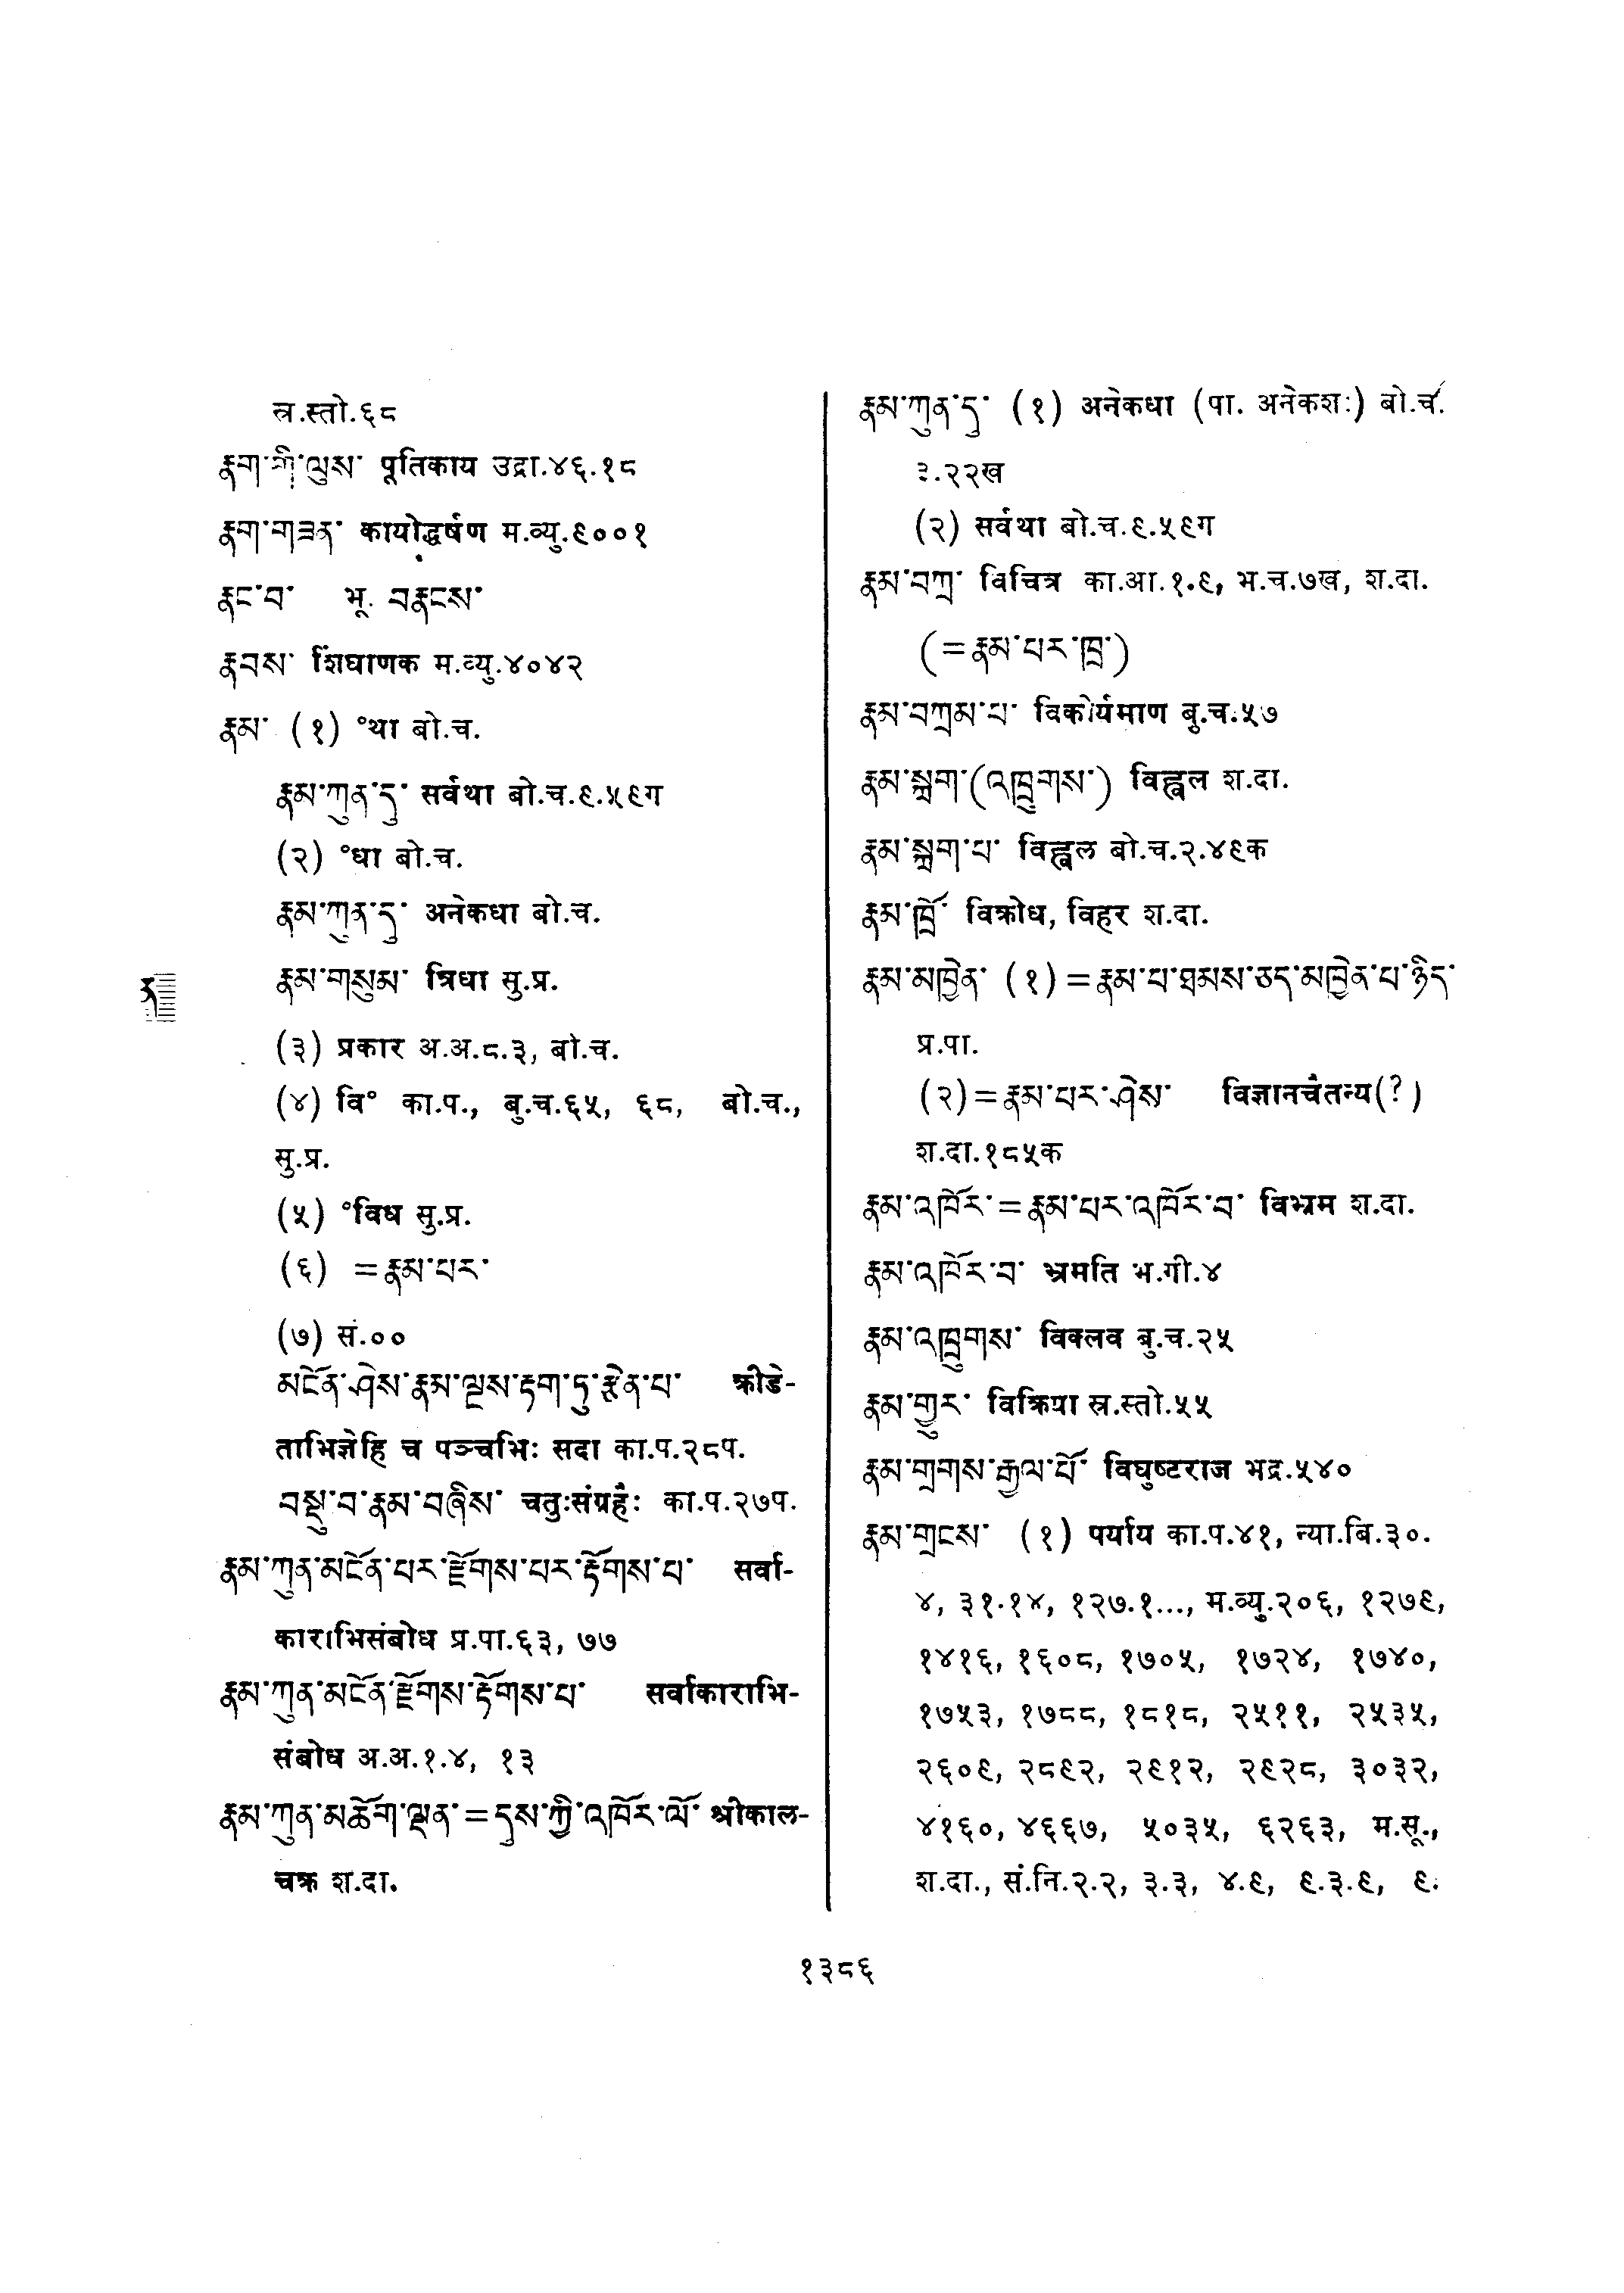 स्र.स्तो.६८
རྣག་གི་ལུས་ पूतिकाय उद्रा.४६.१८
རྣག་གཟན་ कायोद्धर्षण म.व्यु.९००१
རྣང་བ་ भू. བརྣངས་
རྣབས་ शिंघाणक म.व्यु.४०४२
རྣམ་ (१) °था बो.च.
རྣམ་ཀུན་དུ་ सर्वथा बो.च.९.५९ग
(२) °धा बो.च.
རྣམ་ཀུན་དུ་ अनेकधा बो.च.
རྣམ་གསུམ་ त्रिधा सु.प्र.
(३) प्रकार अ.अ.८.३, बो.च.
(४) वि° का.प., बु.च.६५, ६८, बो.च.,
सु.प्र.
(५) °विध सु.प्र.
(६) =རྣམ་པར་
(७) सं.००
མངོན་ཤེས་རྣམ་ལྔས་རྟག་ཏུ་རྩེན་པ་ क्रीडे-
ताभिज्ञेहि च पञ्चभिः सदा का.प.२८प.
བསྡུ་བ་རྣམ་བཞིས་ चतुःसंग्रहैः का.प.२७प.
རྣམ་ཀུན་མངོན་པར་རྫོགས་པར་རྟོགས་པ་ सर्वा-
काराभिसंबोध प्र.पा.६३, ७७
རྣམ་ཀུན་མངོན་རྫོགས་རྟོགས་པ་ सर्वाकाराभि-
संबोध अ.अ.१.४, १३
རྣམ་ཀུན་མཆོག་ལྡན་=དུས་ཀྱི་འཁོར་ལོ་ श्रीकाल-
चक्र श.दा.
རྣམ་ཀུན་དུ་ (१) अनेकधा (पा. अनेकशः) बो.च.
३.२२ख
(२) सर्वथा बो.च.९.५९ग
རྣམ་བཀྲ་ विचित्र का.आ.१.९, भ.च.७ख, श.दा.
(=རྣམ་པར་ཁྲ་)
རྣམ་བཀྲམ་པ་ विकीर्यमाण बु.च.५७
རྣམ་སྐྲག་(འཁྲུགས་) विह्वल श.दा.
རྣམ་སྐྲག་པ་ विह्वल बो.च.२.४९क
རྣམ་ཁྲོ་ विक्रोध, विहर श.दा.
རྣམ་མཁྱེན་ (१)=རྣམ་པ་ཐམས་ཅད་མཁྱེན་པ་ཉིད་
प्र.पा.
(२)=རྣམ་པར་ཤེས་ विज्ञानचैतन्य(?)
श.दा.१८५क
རྣམ་འཁོར་=རྣམ་པར་འཁོར་བ་ विभ्रम श.दा.
རྣམ་འཁོར་བ་ भ्रमति भ.गी.४
རྣམ་འཁྲུགས་ विक्लव बु.च.२५
རྣམ་གྱུར་ विक्रिया स्र.स्तो.५५
རྣམ་གྲགས་རྒྱལ་པོ་ विघुष्टराज भद्र.५४०
རྣམ་གྲངས་ (१) पर्याय का.प.४१, न्या.बि.३०.
४, ३१.१४, १२७.१..., म.व्यु.२०६, १२७९,
१४१६, १६०८, १७०५, १७२४, १७४०,
१७५३, १७८८, १८१८, २५११, २५३५,
२६०९, २८९२, २९१२, २९२८, ३०३२,
४१६०, ४६६७, ५०३५, ६२६३, म.सू.,
श.दा., सं.नि.२.२, ३.३, ४.९, ९.३.९, ९.
१३८६